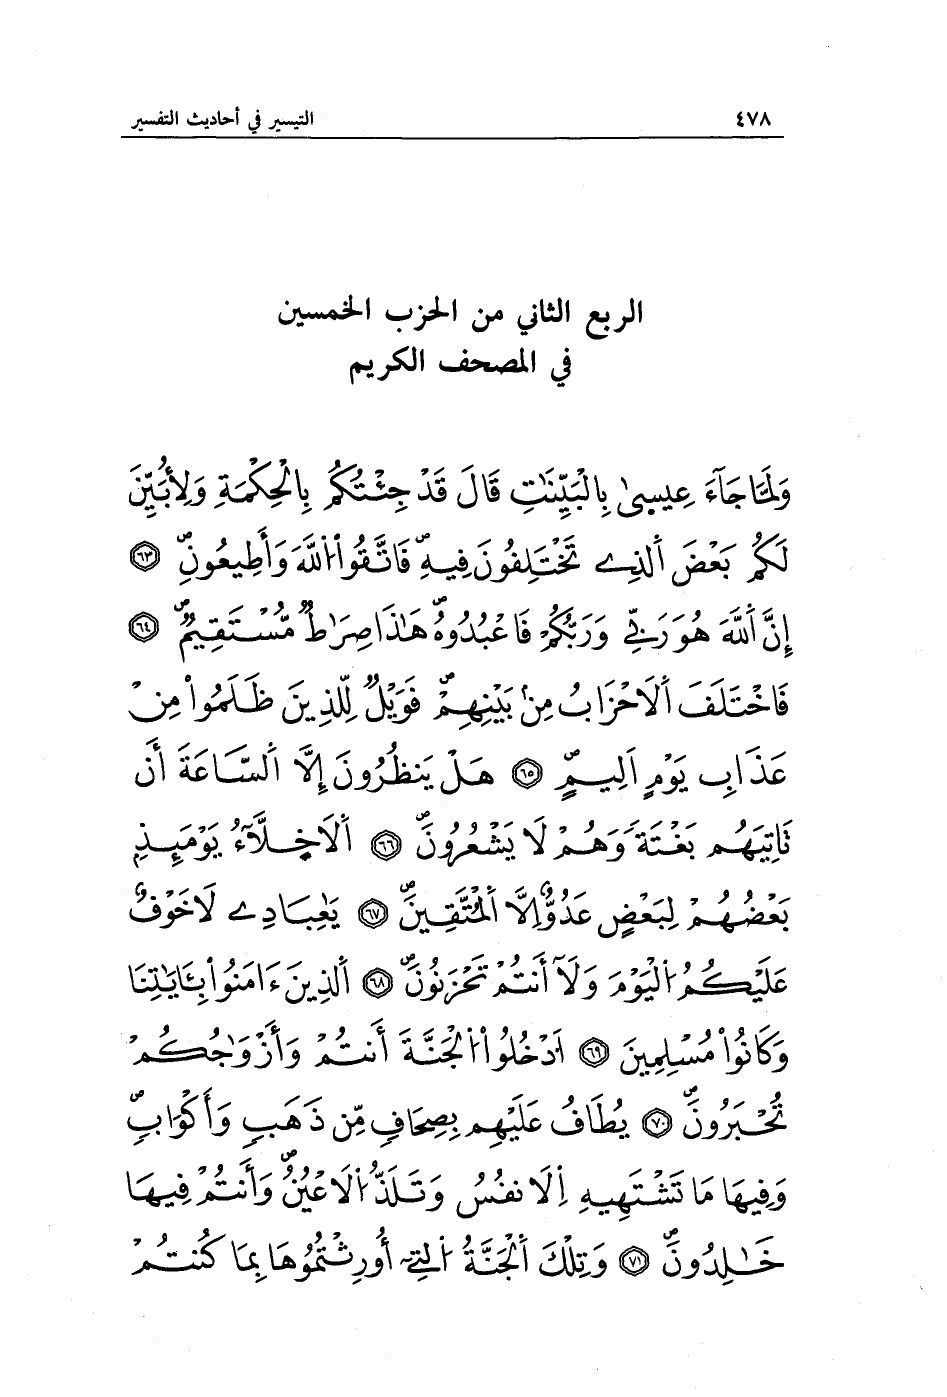 ٤٧٨
التيسير في أحاديث التفسير
الربع الثاني من الحزب الخمسين
في المصحف الكريم
وَلَمَّا جَآءَ عِيسىٰ بِالْبَيِّنَٰتِ قَالَ قَدْ جِئْتُكُم بِالْحِكْمَةِ وَلِأُبَيِّنَ
لَكُم بَعْضَ اَلذِے تَخْتَلِفُونَ فِيهِۖ فَاتَّقُواْ اُللَّهَ وَأَطِيعُونِۖ ٦٣
إِنَّ اَللَّهَ هُوَ رَبِّے وَرَبُّكُمْ فَاعْبُدُوهُۖ هَٰذَا صِرَٰطٌ مُّسْتَقِيمٌۖ ٦٤
فَاخْتَلَفَ اَلَاحْزَابُ مِنۢ بَيْنِهِمْۖ فَوَيْلٌ لِّلذِينَ ظَلَمُواْ مِنْ
عَذَابِ يَوْمٍ اَلِيمٍۖ ٦٥ هَلْ يَنظُرُونَ إِلَّا اَلسَّاعَةَ أَن
تَاتِيَهُم بَغْتَةً وَهُمْ لَا يَشْعُرُونَۖ ٦٦ اَلَاخِلَّآءُ يَوْمَئِذِۢ
بَعْضُهُمْ لِبَعْضٍ عَدُوٌّ اِلَّا اَلْمُتَّقِينَۖ ٦٧ يَٰعِبَادِے لَا خَوْفٌ
عَلَيْكُمُ اُلْيَوْمَ وَلَآ أَنتُمْ تَحْزَنُونَۖ ٦٨ اَلذِينَ ءَامَنُواْ بِـَٔايَٰتِنَا
وَكَانُواْ مُسْلِمِينَ ٦٩ اَدْخُلُواْ اُلْجَنَّةَ أَنتُمْ وَأَزْوَٰجُكُمْ
تُحْبَرُونَۖ ٧٠ يُطَافُ عَلَيْهِم بِصِحَافٍ مِّن ذَهَبٍ وَأَكْوَابٍۖ
وَفِيهَا مَا تَشْتَهِيهِ اِلَانفُسُ وَتَلَذُّ اُلَاعْيُنُۖ وَأَنتُمْ فِيهَا
خَٰلِدُونَۖ ٧١ وَتِلْكَ اَلْجَنَّةُ اُلتِےٓ أُورِثْتُمُوهَا بِمَا كُنتُمْ